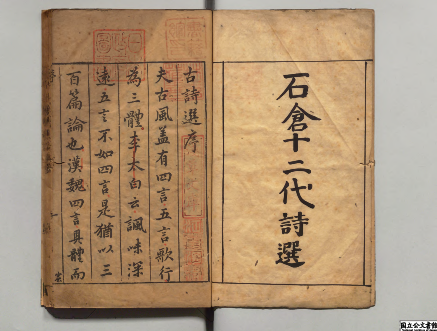 石倉十二代詩選
古詩選序
夫古風盖有四言五言歌行
為三體李太白云諷味深
遠五言不如四言是猶以三
百篇論也漢魏四言具體而
国立公文書館